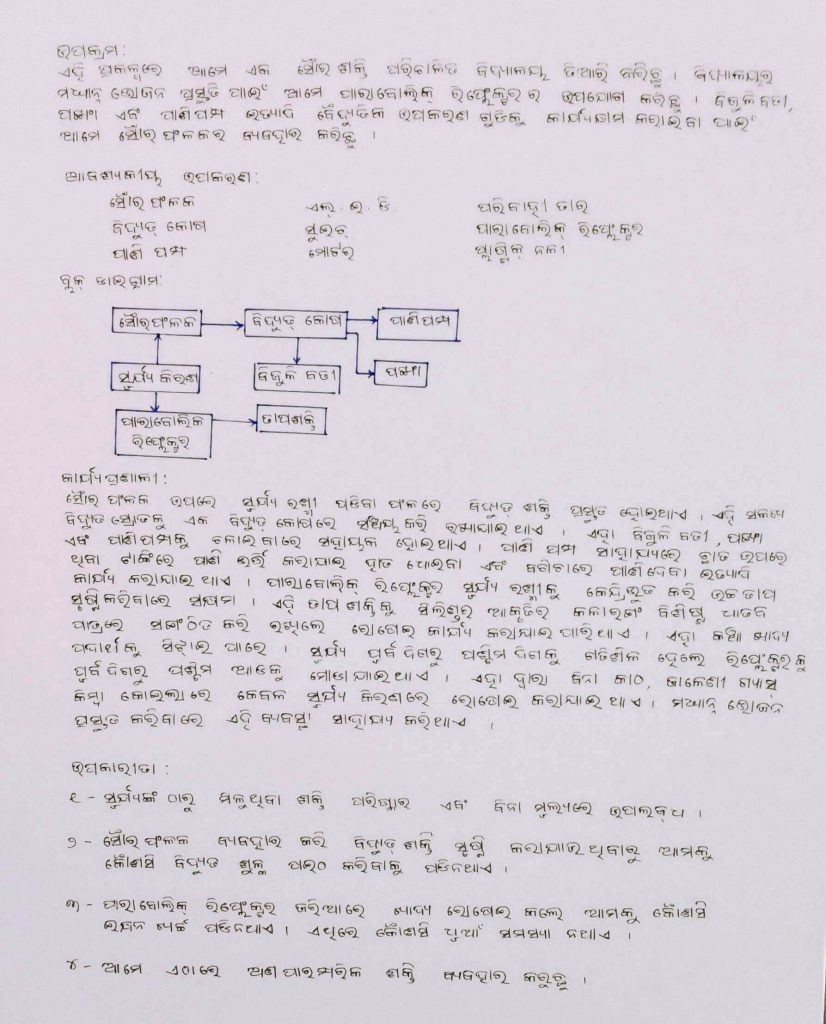 ଉପକ୍ରମ:
ଏହି ପ୍ରକଳ୍ପରେ ଆମେ ଏକ ସୌର ଶକ୍ତି ପରିଚାଳିତ ବିଦ୍ୟାଳୟ ତିଆରି କରିଛୁ । ବିଦ୍ୟାଳୟର
ମଧ୍ୟାହ୍ନ ଭୋଜନ ପ୍ରସ୍ତୁତି ପାଇଁ ଆମେ ପାରାବୋଲିକ୍ ରିଫ୍ଲେକ୍ଟର ର ଉପଯୋଗ କରିଛୁ । ବିଜୁଳି ବତୀ,
ପଙ୍ଖା ଏବଂ ପାଣିପମ୍ପ ଇତ୍ୟାଦି ବୈଦ୍ୟୁତିକ ଉପକରଣ ଗୁଡିକୁ କାର୍ଯ୍ୟକ୍ଷମ କରାଇବା ପାଇଁ
ଆମେ ସୌର ଫଳକର ବ୍ୟବହାର କରିଛୁ ।
ଆବଶ୍ୟକୀୟ ଉପକରଣ:
ସୌର ଫଳକ ଏଲ୍. ଇ. ଡି. ପରିବାହୀ ତାର
ବିଦ୍ୟୁତ୍ କୋଷ ସୁଇଚ୍ ପାରାବୋଲିକ୍ ରିଫ୍ଲେକ୍ଟର
ପାଣି ପମ୍ପ ମୋଟର ପ୍ଲାଷ୍ଟିକ୍ ନଳୀ
ବ୍ଲକ୍ ଡାଇଗ୍ରାମ:
ସୌରଫଳକ ବିଦ୍ୟୁତ୍ କୋଷ ପାଣିପମ୍ପ
ସୂର୍ଯ୍ୟ କିରଣ ବିଜୁଳି ବତୀ ପଙ୍ଖା
ପାରାବୋଲିକ ତାପଶକ୍ତି
ରିଫ୍ଲେକ୍ଟର
କାର୍ଯ୍ୟପ୍ରଣାଳୀ:
ସୌର ଫଳକ ଉପରେ ସୂର୍ଯ୍ୟ ରଶ୍ମୀ ପଡିବା ଫଳରେ ବିଦ୍ୟୁତ୍ ଶକ୍ତି ପ୍ରସ୍ତୁତ ହୋଇଥାଏ । ଏହି ସଳଖ
ବିଦ୍ୟୁତ ସ୍ରୋତକୁ ଏକ ବିଦ୍ୟୁତ୍ କୋଷରେ ସଞ୍ଚୟ କରି ରଖାଯାଇଥାଏ । ଏହା ବିଜୁଳି ବତୀ, ପଙ୍ଖା
ଏବଂ ପାଣିପମ୍ପକୁ ଚଳାଇବାରେ ସହାୟକ ହୋଇଥାଏ । ପାଣି ପମ୍ପ ସାହାଯ୍ୟରେ ଛାତ ଉପରେ
ଥିବା ଟାଙ୍କିରେ ପାଣି ଭର୍ତ୍ତି କରାଯାଇ ହାତ ଧୋଇବା ଏବଂ ବଗିଚାରେ ପାଣିଦେବା ଇତ୍ୟାଦି
କାର୍ଯ୍ୟ କରାଯାଇଥାଏ । ପାରାବୋଲିକ୍ ରିଫ୍ଲେକ୍ଟର ସୂର୍ଯ୍ୟ ରଶ୍ମୀକୁ କେନ୍ଦ୍ରିଭୁତ କରି ଉଚ୍ଚ ତାପ
ସୃଷ୍ଟି କରିବାରେ ସକ୍ଷମ । ଏହି ତାପ ଶକ୍ତିକୁ ସିଲିଣ୍ଡର ଆକୃତିର କଳାରଙ୍ଗ ବିଶିଷ୍ଟ ଧାତବ
ପାତ୍ରରେ ସଙ୍ଗଠିତ କରି ରଖିଲେ ରୋଷେଇ କାର୍ଯ୍ୟ କରାଯାଇ ପାରିଥାଏ । ଏହା କଞ୍ଚା ଖାଦ୍ୟ
ପଦାର୍ଥକୁ ସିଝାଇ ପାରେ । ସୂର୍ଯ୍ୟ ପୂର୍ବ ଦିଗରୁ ପଶ୍ଚିମ ଦିଗକୁ ଗତିଶୀଳ ହେଲେ ରିଫ୍ଲେକ୍ଟରକୁ
ପୂର୍ବ ଦିଗରୁ ପଶ୍ଚିମ ଆଡକୁ ମୋଡାଯାଇଥାଏ । ଏହା ଦ୍ୱାରା ବିନା କାଠ, ଜାଳେଣୀ ଗ୍ୟାସ୍
କିମ୍ବା କୋଇଲାରେ କେବଳ ସୂର୍ଯ୍ୟ କିରଣରେ ରୋଷେଇ କରାଯାଇଥାଏ । ମଧ୍ୟାହ୍ନ ଭୋଜନ
ପ୍ରସ୍ତୁତ କରିବାରେ ଏହି ବ୍ୟବସ୍ଥା ସାହାଯ୍ୟ କରିଥାଏ ।
ଉପକାରୀତା :
୧ - ସୂର୍ଯ୍ୟଙ୍କ ଠାରୁ ମିଳୁଥିବା ଶକ୍ତି ପରିଷ୍କାର ଏବଂ ବିନା ମୂଲ୍ୟରେ ଉପଲବ୍ଧ ।
୨ - ସୌର ଫଳକ ବ୍ୟବହାର କରି ବିଦ୍ୟୁତ୍ ଶକ୍ତି ସୃଷ୍ଟି କରାଯାଇଥିବାରୁ ଆମକୁ
କୌଣସି ବିଦ୍ୟୁତ ଶୁଳ୍କ ପଇଠ କରିବାକୁ ପଡିନଥାଏ ।
୩ - ପାରାବୋଲିକ୍ ରିଫ୍ଲେକ୍ଟର ଜରିଆରେ ଖାଦ୍ୟ ରୋଷେଇ କଲେ ଆମକୁ କୌଣସି
ଇନ୍ଧନ ଖର୍ଚ୍ଚ ପଡିନଥାଏ । ଏଥିରେ କୌଣସି ଧୂଆଁ ସମସ୍ୟା ନଥାଏ ।
୪ - ଆମେ ଏଠାରେ ଅଣପାରମ୍ପରିକ ଶକ୍ତି ବ୍ୟବହାର କରୁଛୁ ।